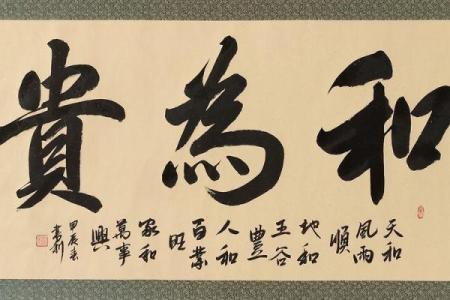 和為貴
天和
風雨
順
地和
五谷
豐
人和
百業
旺
家和
萬事
興
甲辰